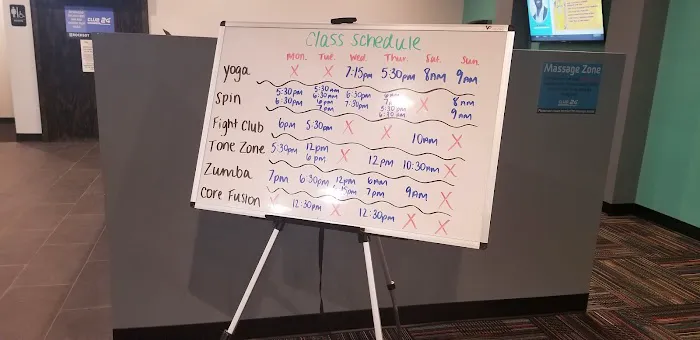 Class schedule
Mon. Tue. Wed. Thur. Sat. Sun
yoga X X 7:15pm 5:30pm 8am 9am
Spin 5:30pm 5:30am 6:30pm X 8am
6:30pm 6:30am 7:30pm 5:30pm 9am
6pm 6:30pm
7pm
Fight Club 6pm 5:30am X X 10am X
Tone Zone 5:30pm 12pm X 12pm 10:30am X
6pm
Zumba 7pm 6:30pm 12pm 6am 9am X
7pm
Core Fusion X 12:30pm X 12:30pm X X
Massage Zone
CLUB 24
CLUB 24